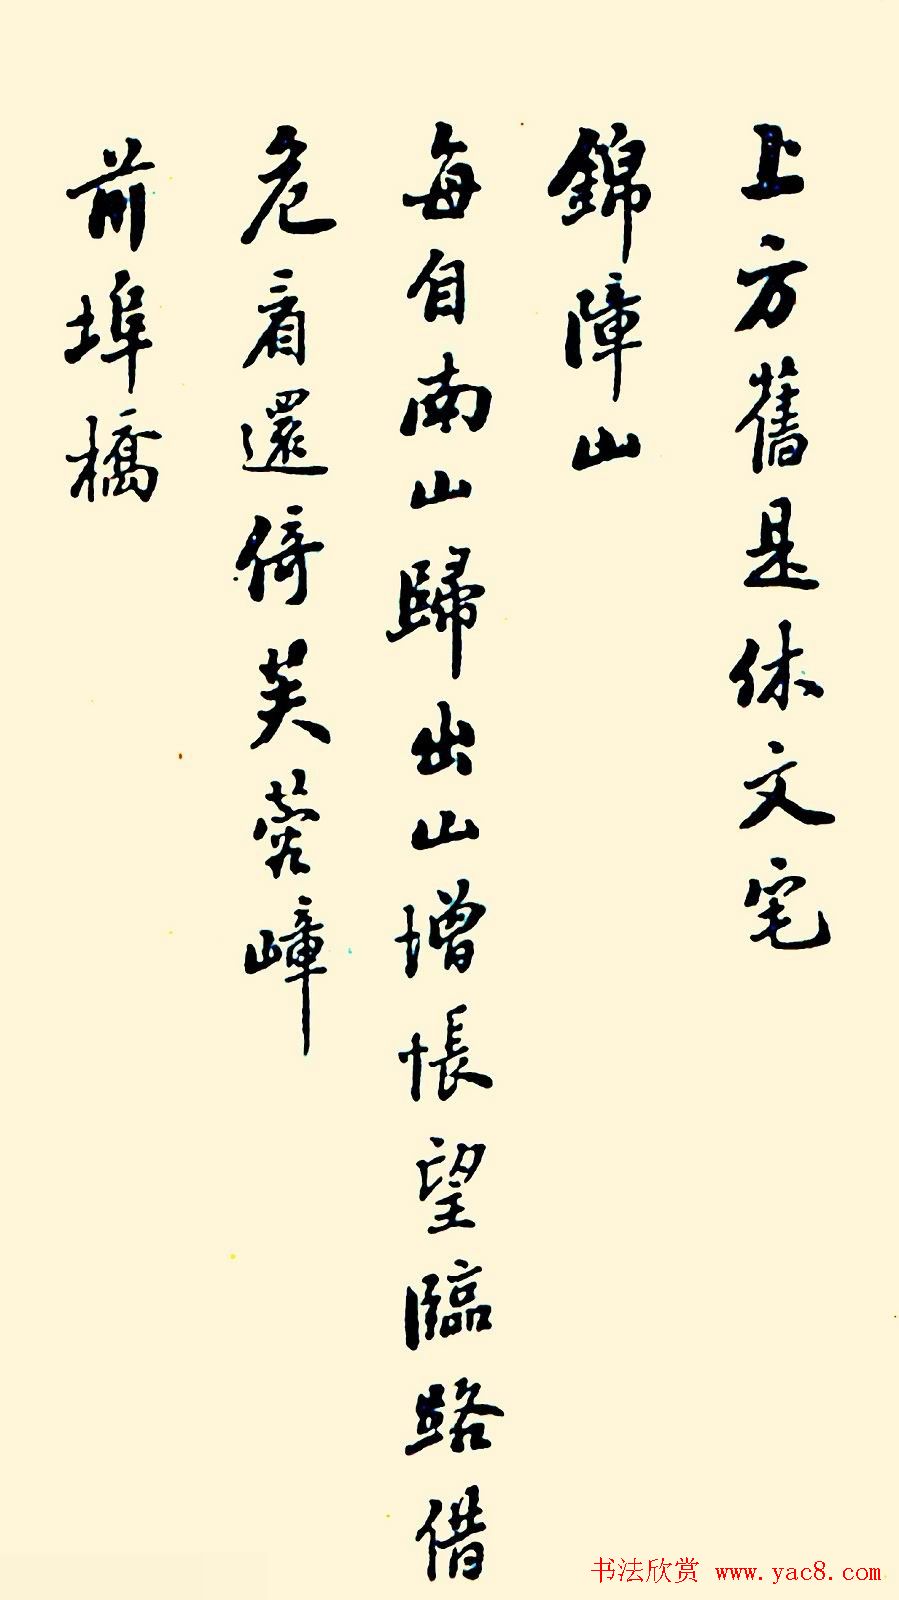 上方舊是休文宅
錦障山
每自南山歸出山增悵望臨路借
危看還倚芙蓉嶂
前埠橋
书法欣赏 www.yac8.com